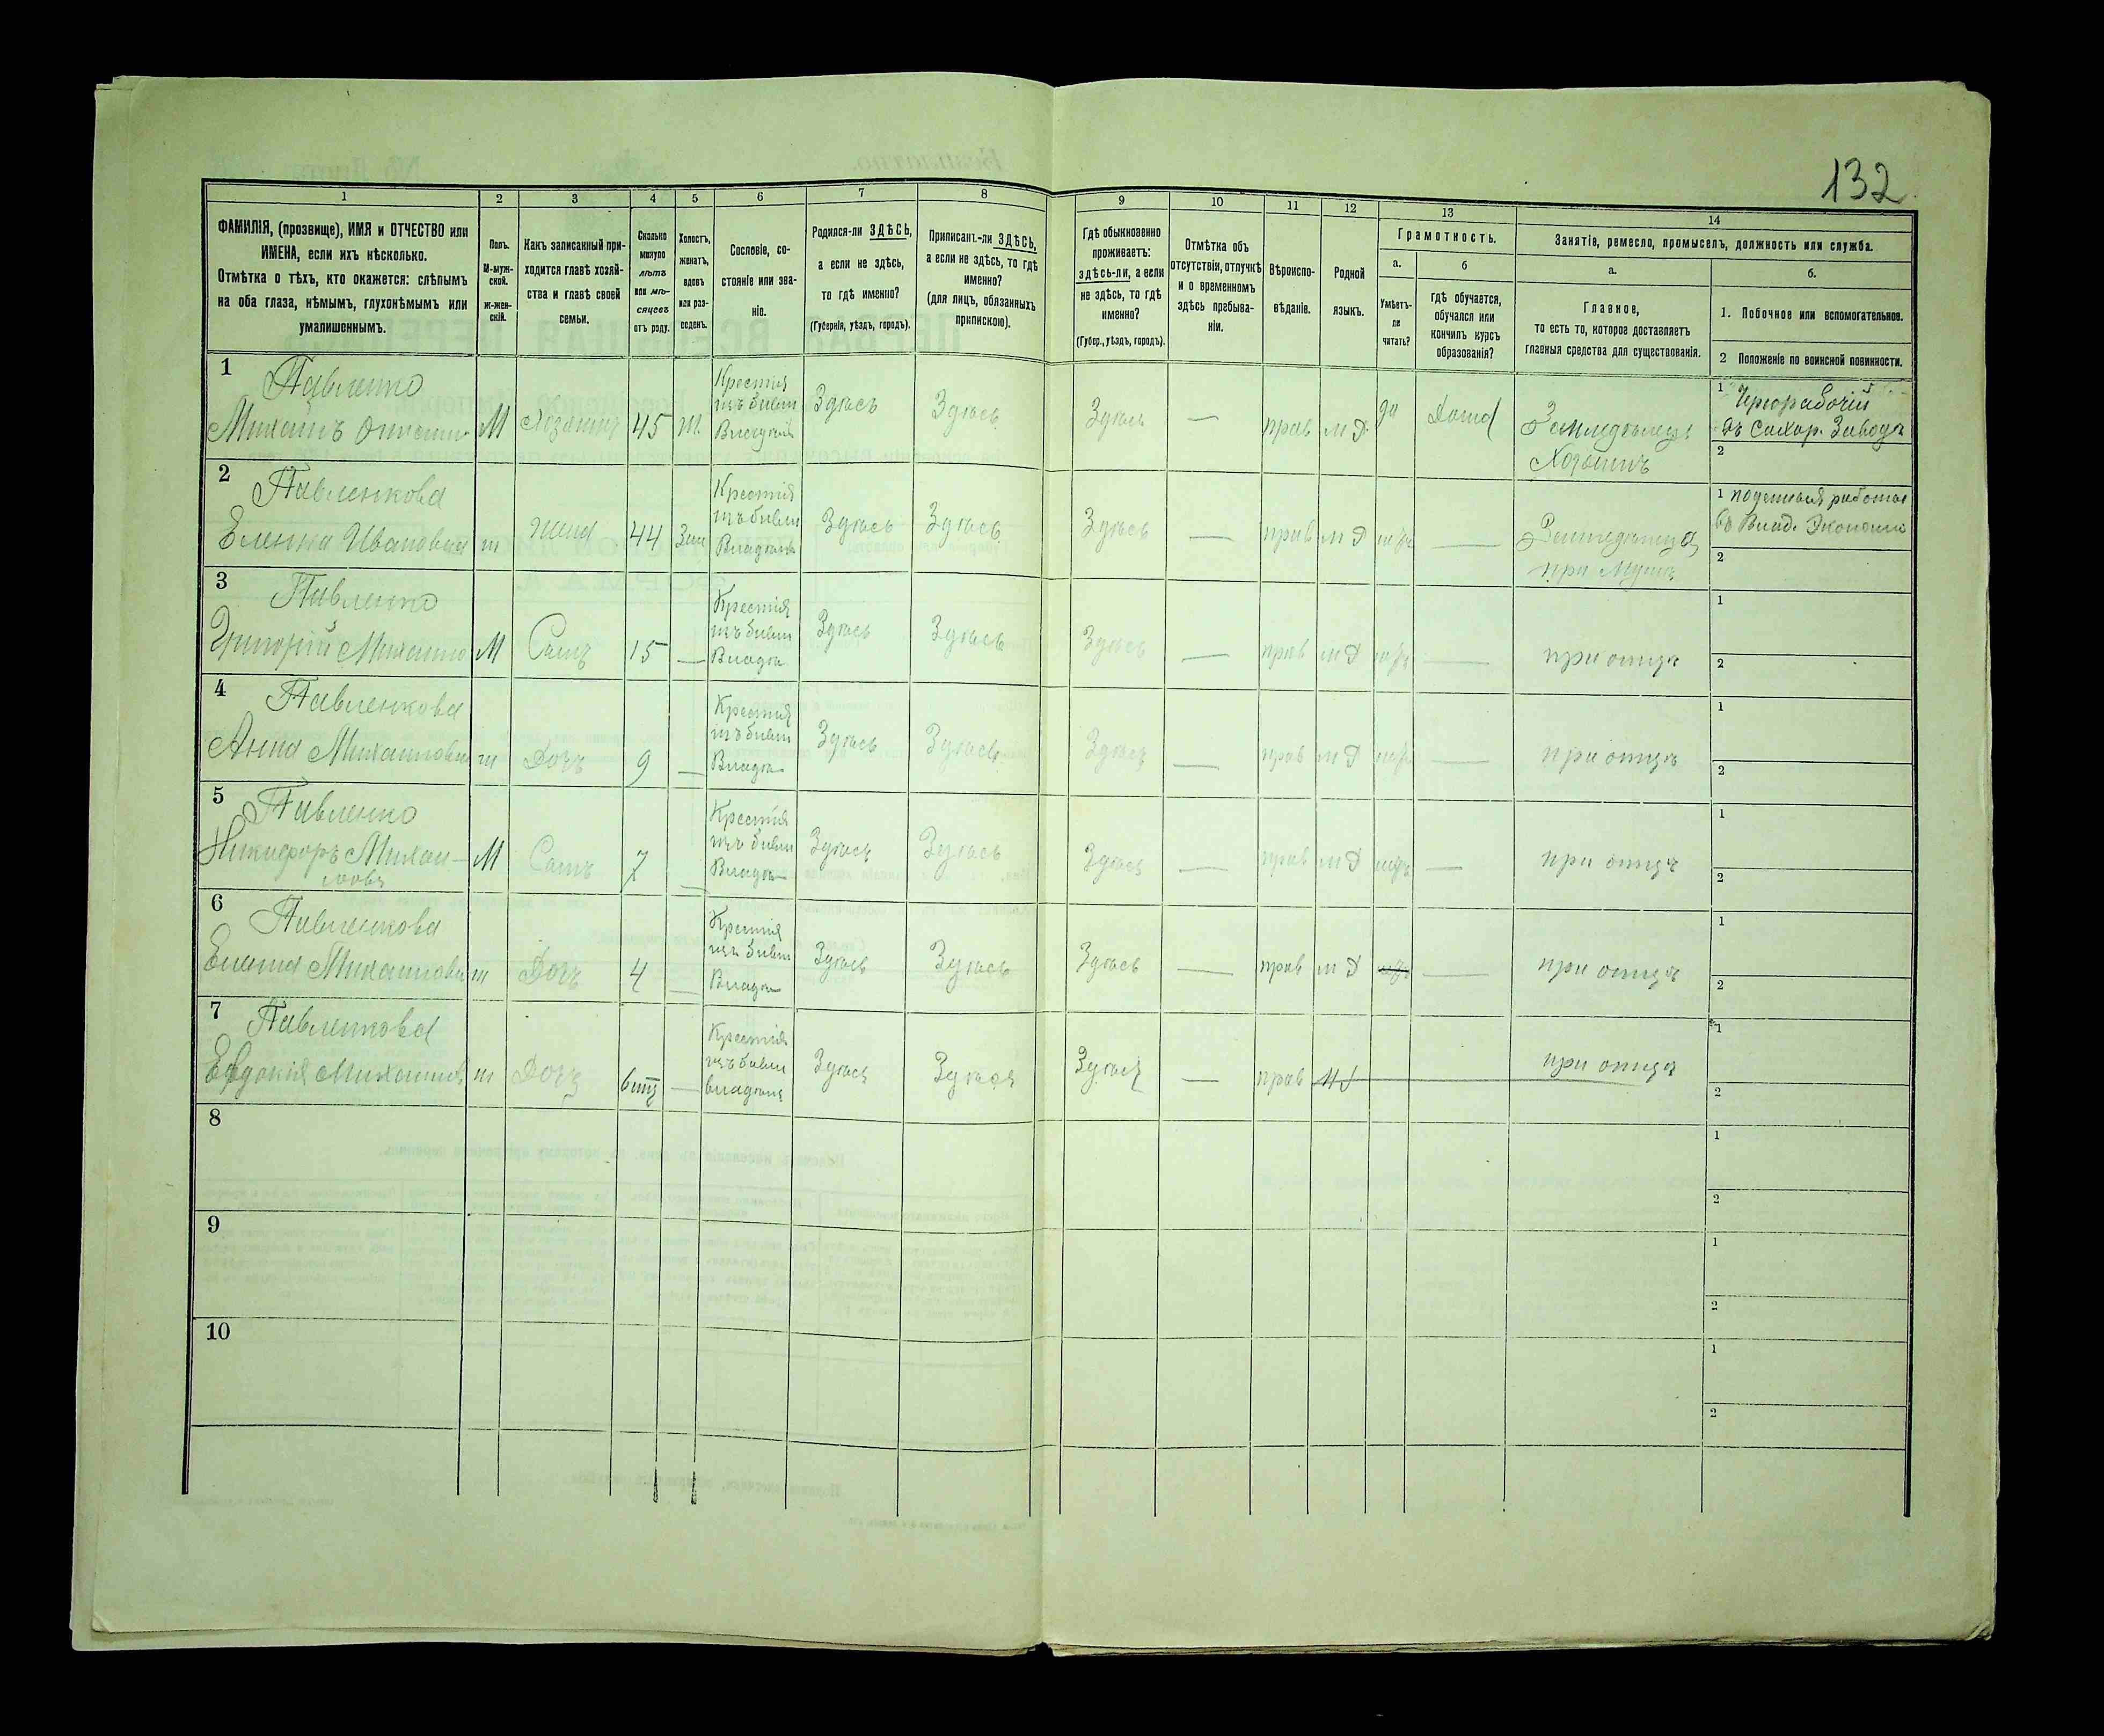 132
1
2
3
4
5
6
7
8
9
10
11
12
13
14
ФАМИЛІЯ, (прозвище), ИМЯ и ОТЧЕСТВО или
ИМЕНА, если ихъ нѣсколько.
Отмѣтка о тѣхъ, кто окажется: слѣпымъ
на оба глаза, нѣмымъ, глухонѣмымъ или
умалишеннымъ.
Полъ.
М-муж-
ской.
ж-жен-
скій.
Какъ записанный при-
ходится главѣ хозяй-
ства и главѣ своей
семьи.
Сколько
минуло
лѣтъ
или мѣ-
сяцевъ
отъ роду.
Холостъ,
женатъ,
вдовъ
или раз-
веденъ.
Сословіе, со-
стояніе или зва-
ніе.
Родился-ли ЗДѢСЬ,
а если не здѣсь,
то гдѣ именно?
(Губернія, уѣздъ, городъ).
Приписанъ-ли ЗДѢСЬ,
а если не здѣсь, то гдѣ
именно?
(для лицъ, обязанныхъ
припискою).
Гдѣ обыкновенно
проживаетъ:
здѣсь-ли, а если
не здѣсь, то гдѣ
именно?
(Губер., уѣздъ, городъ).
Отмѣтка объ
отсутствіи, отлучкѣ
и о временномъ
здѣсь пребыва-
ніи.
Вѣроиспо-
вѣданіе.
Родной
языкъ.
Грамотность.
а.
Умѣетъ-
ли
читать?
б
гдѣ обучается,
обучался или
кончилъ курсъ
образованія?
Занятіе, ремесло, промыселъ, должность или служба.
а.
Главное,
то есть то, которое доставляетъ
главныя средства для существованія.
б.
1. Побочное или вспомогательное.
2 Положеніе по воинской повинности.
1
Павленко
Михаилъ
М
Хозяинъ
45
Ж.
Крестія
изъ бывш
Здѣсь
Здѣсь
Здѣсь
—
прав
м Р.
да
Дома
Земледѣлецъ
Хозяинъ
1 Чернорабочій
въ Сахар. Заводѣ
2
2
Павленкова
Елена Ивановна
ж
жена
44
Зам
Крестія
изъ бывш
Здѣсь
Здѣсь
Здѣсь
—
прав
м Р
—
Земледѣлица
при Мужѣ
1 поденная работа
въ Влад. Экономіи
2
3
Павленко
Григорій Михаило
М
Сынъ
15
—
Крестія
изъ бывш
Владѣ
Здѣсь
Здѣсь
Здѣсь
—
прав
м Р
—
при отцѣ
1
2
4
Павленкова
Анна Михаиловна
ж
Дочь
9
—
Крестія
изъ бывш
Владѣ
Здѣсь
Здѣсь
Здѣсь
—
прав
м Р
—
при отцѣ
1
2
5
Павленко
Никифоръ Михаи-
ловъ
М
Сынъ
7
—
Крестія
изъ бывш
Владѣ
Здѣсь
Здѣсь
Здѣсь
—
прав
м Р
—
при отцѣ
1
2
6
Павленкова
Елена Михаиловна
ж
Дочь
4
—
Крестія
изъ бывш
Владѣ
Здѣсь
Здѣсь
Здѣсь
—
прав
м Р
—
при отцѣ
1
2
7
Павленкова
Евдокія Михаилов
ж
Дочь
—
Крестія
изъ бывш
Здѣсь
Здѣсь
Здѣсь
—
прав
при отцѣ
1
2
8
1
2
9
1
2
10
1
2